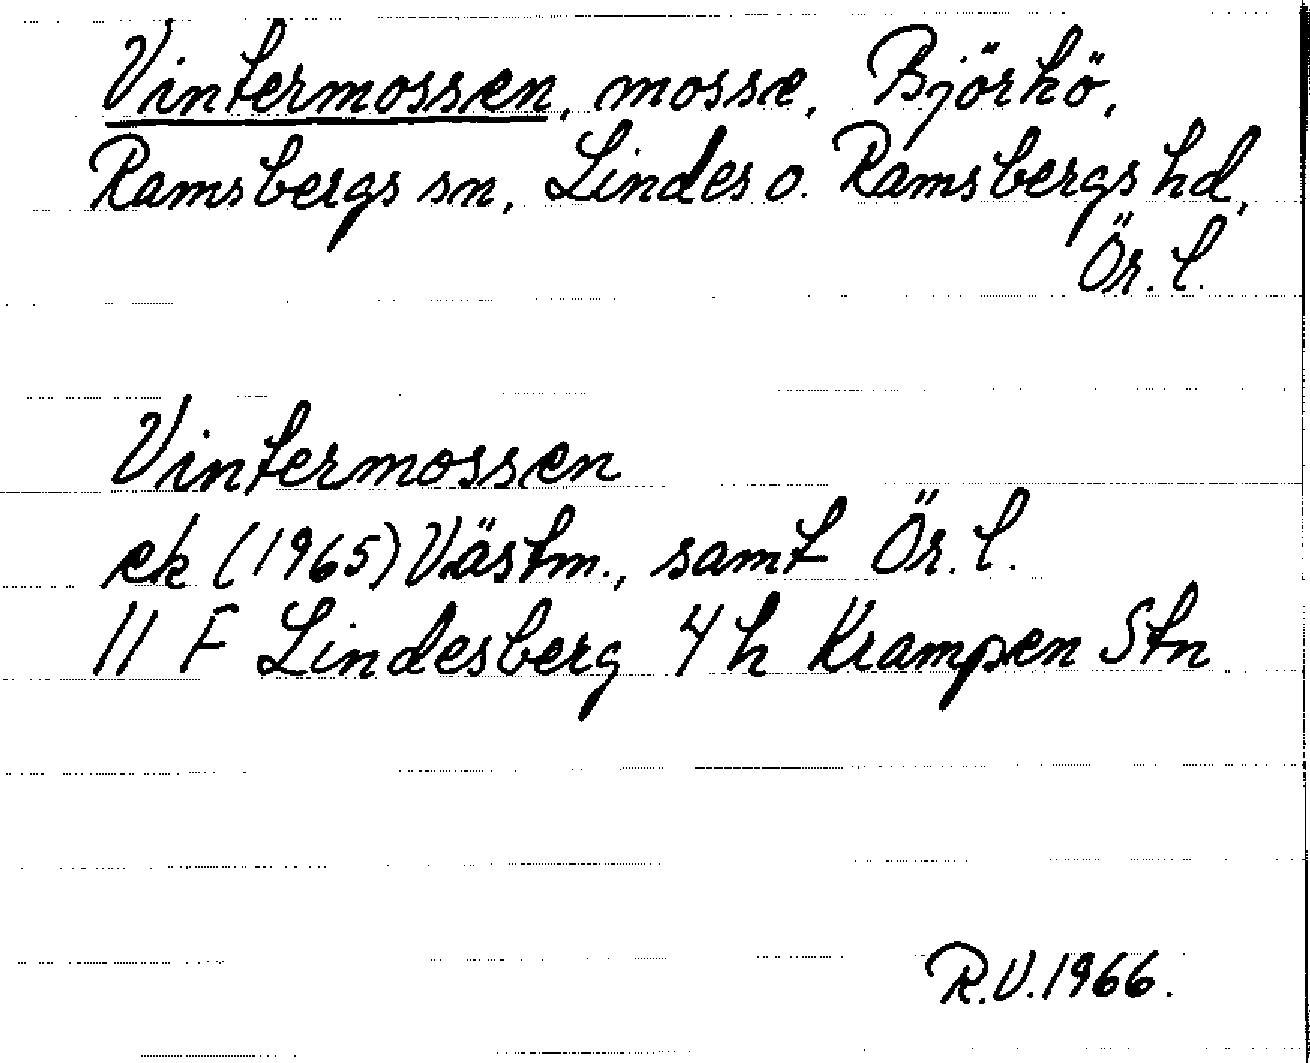 Vintermossen, mosse, Björkö,
Ramsbergs sn, Lindes o. Ramsbergs hd,
Ör. l.
Vintermossen
ek (1965) Västm., samt Ör. l.
11 F Lindesberg 4 h Krampen Stn
R.V. 1966.